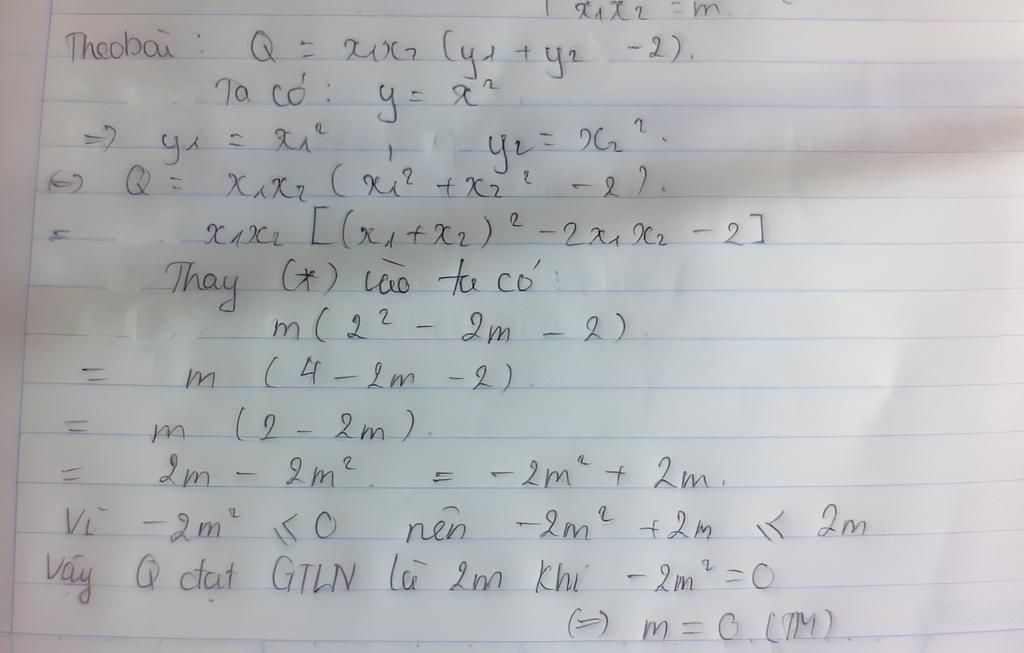 x₁x₂ = m.
Theo bài : Q = x₁x₂ (y₁ + y₂ - 2).
Ta có : y = x²
=> y₁ = x₁² , y₂ = x₂².
<=> Q = x₁x₂ (x₁² + x₂² - 2).
= x₁x₂ [(x₁ + x₂)² - 2x₁x₂ - 2]
Thay (*) vào ta có :
m(2² - 2m - 2)
= m (4 - 2m - 2)
= m (2 - 2m).
= 2m - 2m². = -2m² + 2m.
Vì -2m² ≤ 0 nên -2m² + 2m ≤ 2m
Vậy Q đạt GTLN là 2m khi -2m² = 0
(=) m = 0. (TM)